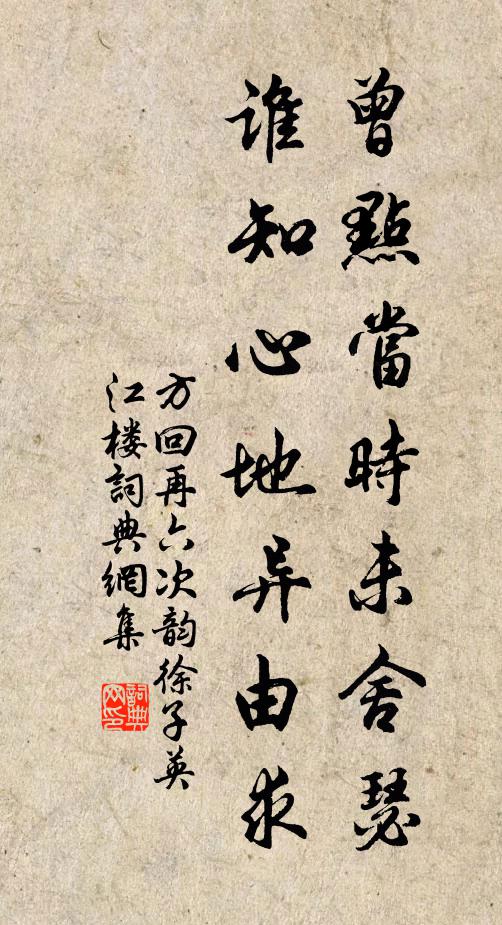 曾點當時未舍瑟
谁知心地异由求
方回再六次韵徐子英
江楼詞典網集
詞典
网印